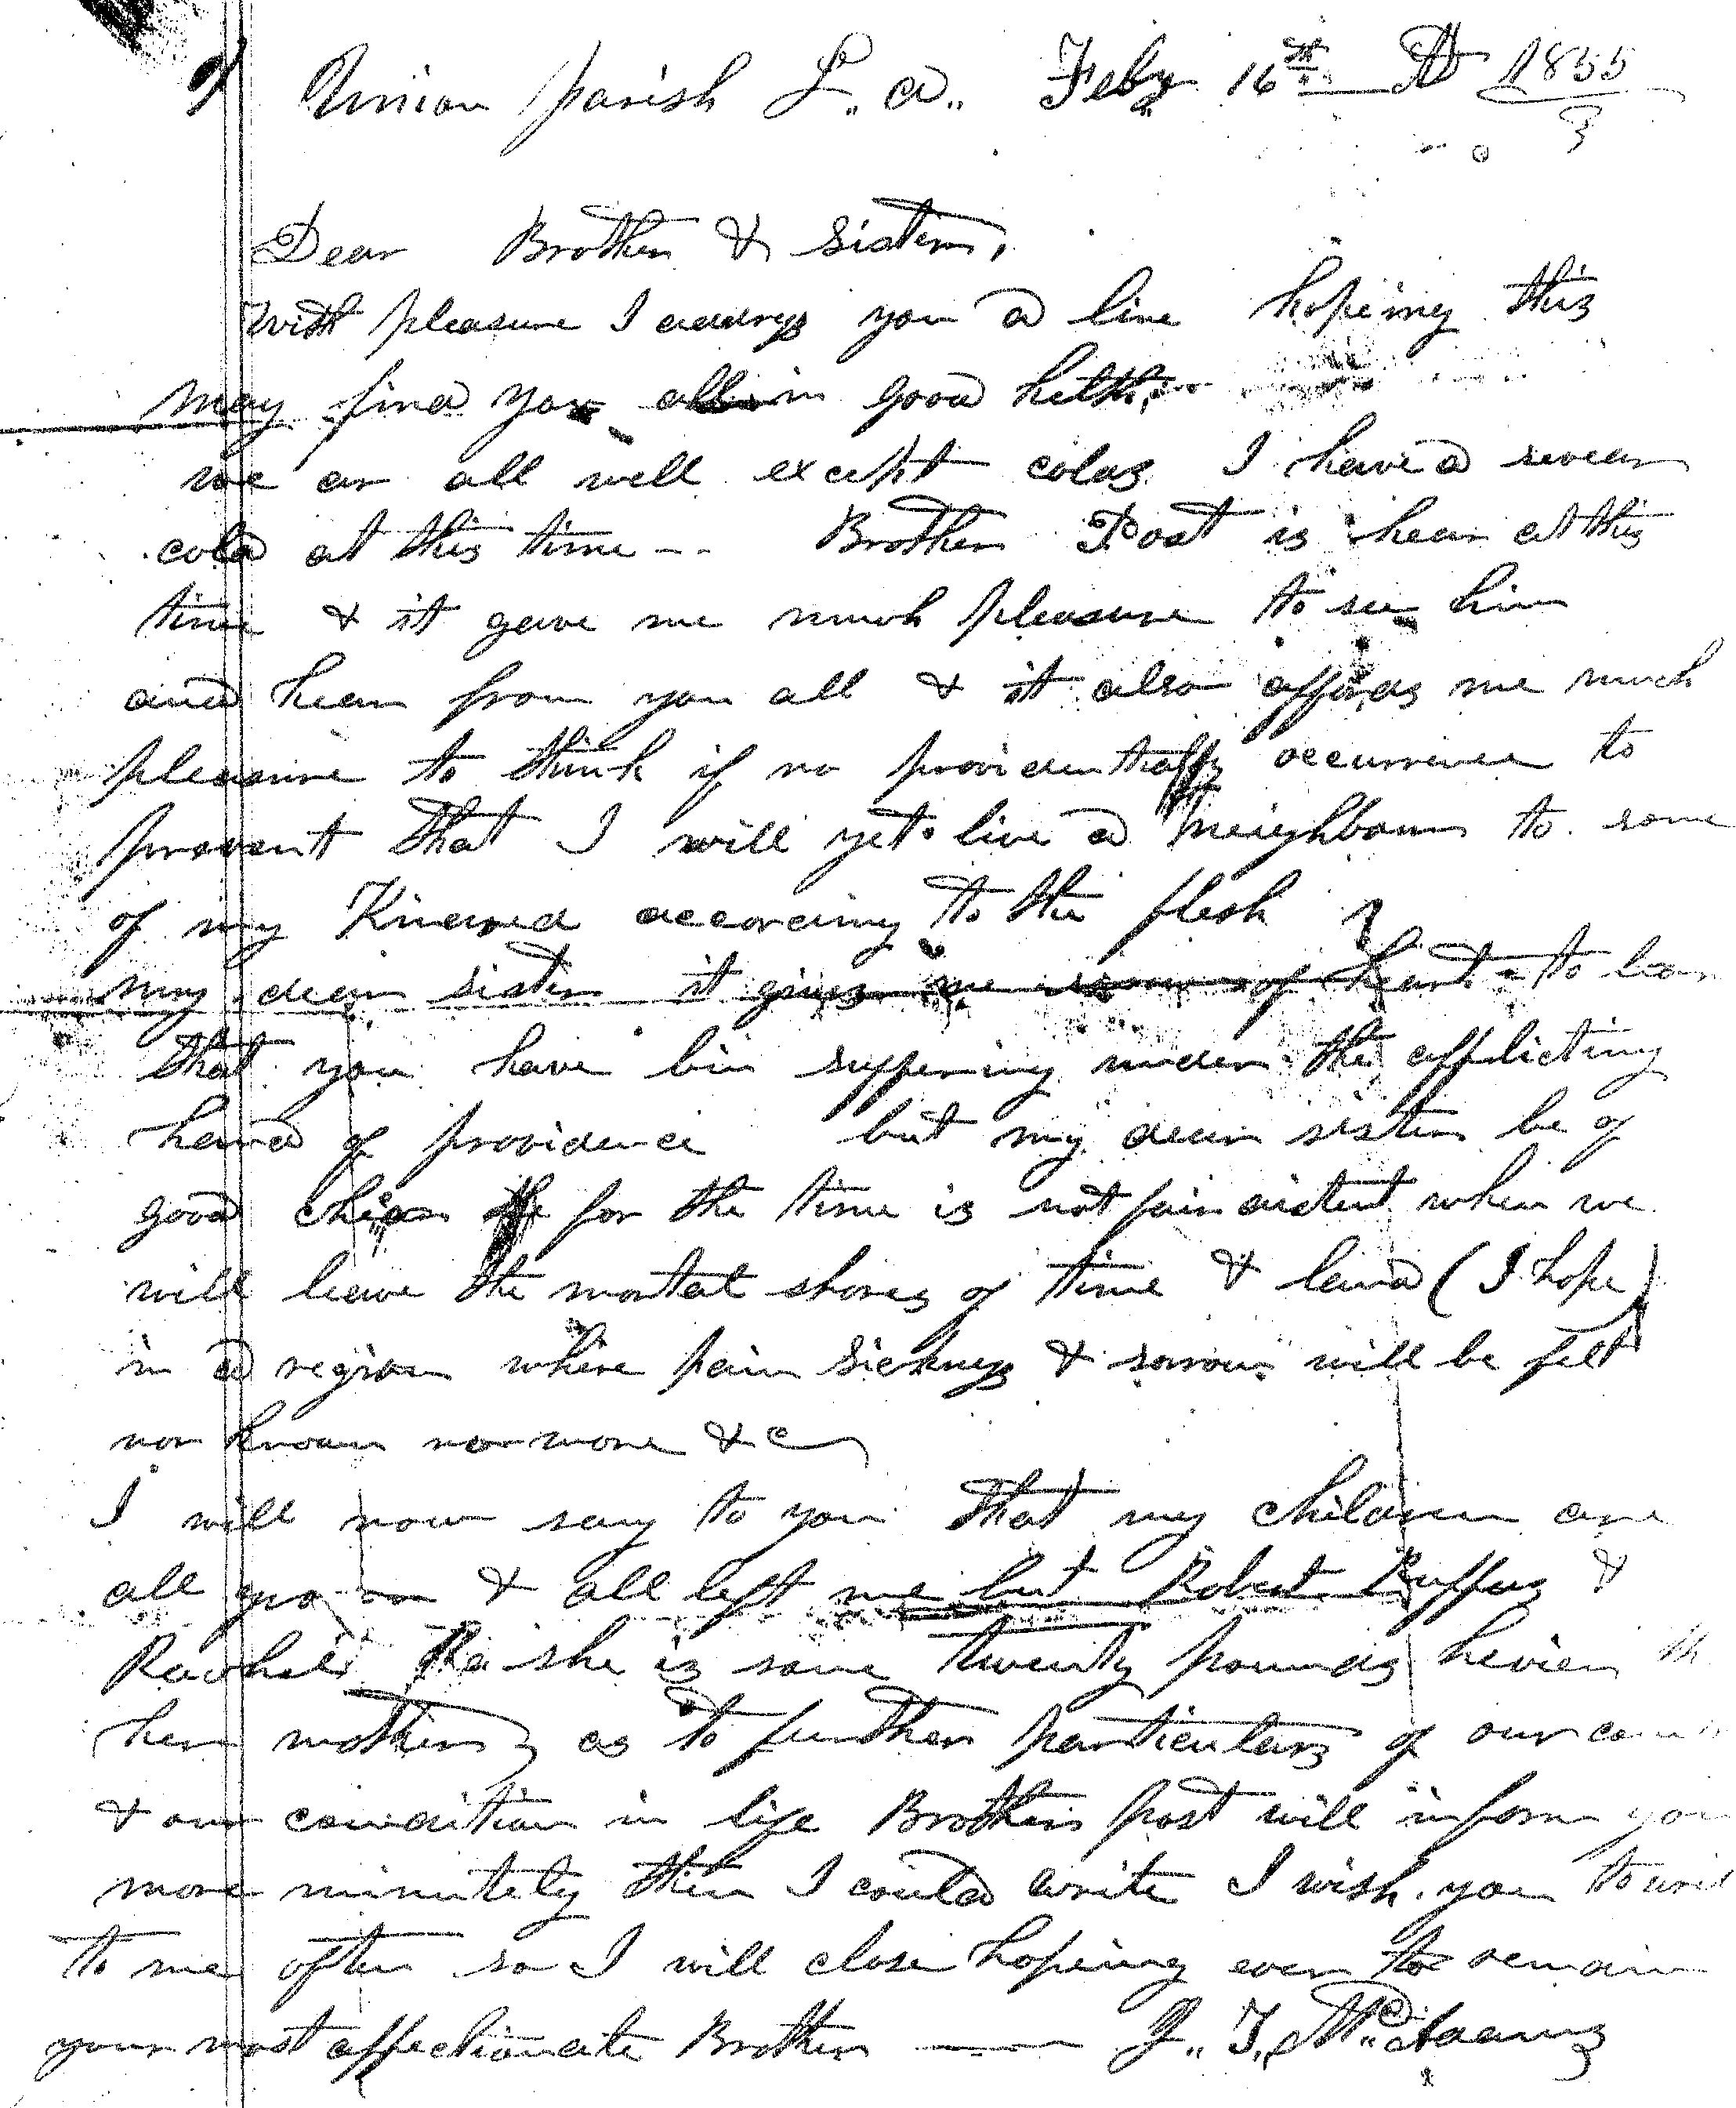 Union parish L,, a,, Feby 16th AD 1855
Dear Brother & sister,
With pleasure I address you a line hopeing this
may find you all in good helth,
we ar all well except colds I have a sevear
cold at this time -- Brother Post is hear at this
time & it gave me much pleasure to see him
and hear from you all & it also affords me much
pleasure to think if no providentially occurrence to
prevent that I will yet live a neighbour to some
of my Kindred according to the flesh
my dear sister it gives me sorrow of heart to hear
that you have bin suffering under the afflicting
hand of providence but my dear sister be of
good chear for the time is not fair distent when we
will leave the mortal shores of time & land (I hope)
in a region where pain sickness & sorrow will be felt
nor known no more &c
I will now say to you that my children are
all grown & all left me but Robert Ruffus &
Rachel she is some twenty pounds hevier
her mother, as to further particulars of our
& our condition in life Brother post will inform you
more minutely then I could write I wish you to
to me often so I will close hopeing ever to remain
your most affectionate Brother J,, T,, McAdams